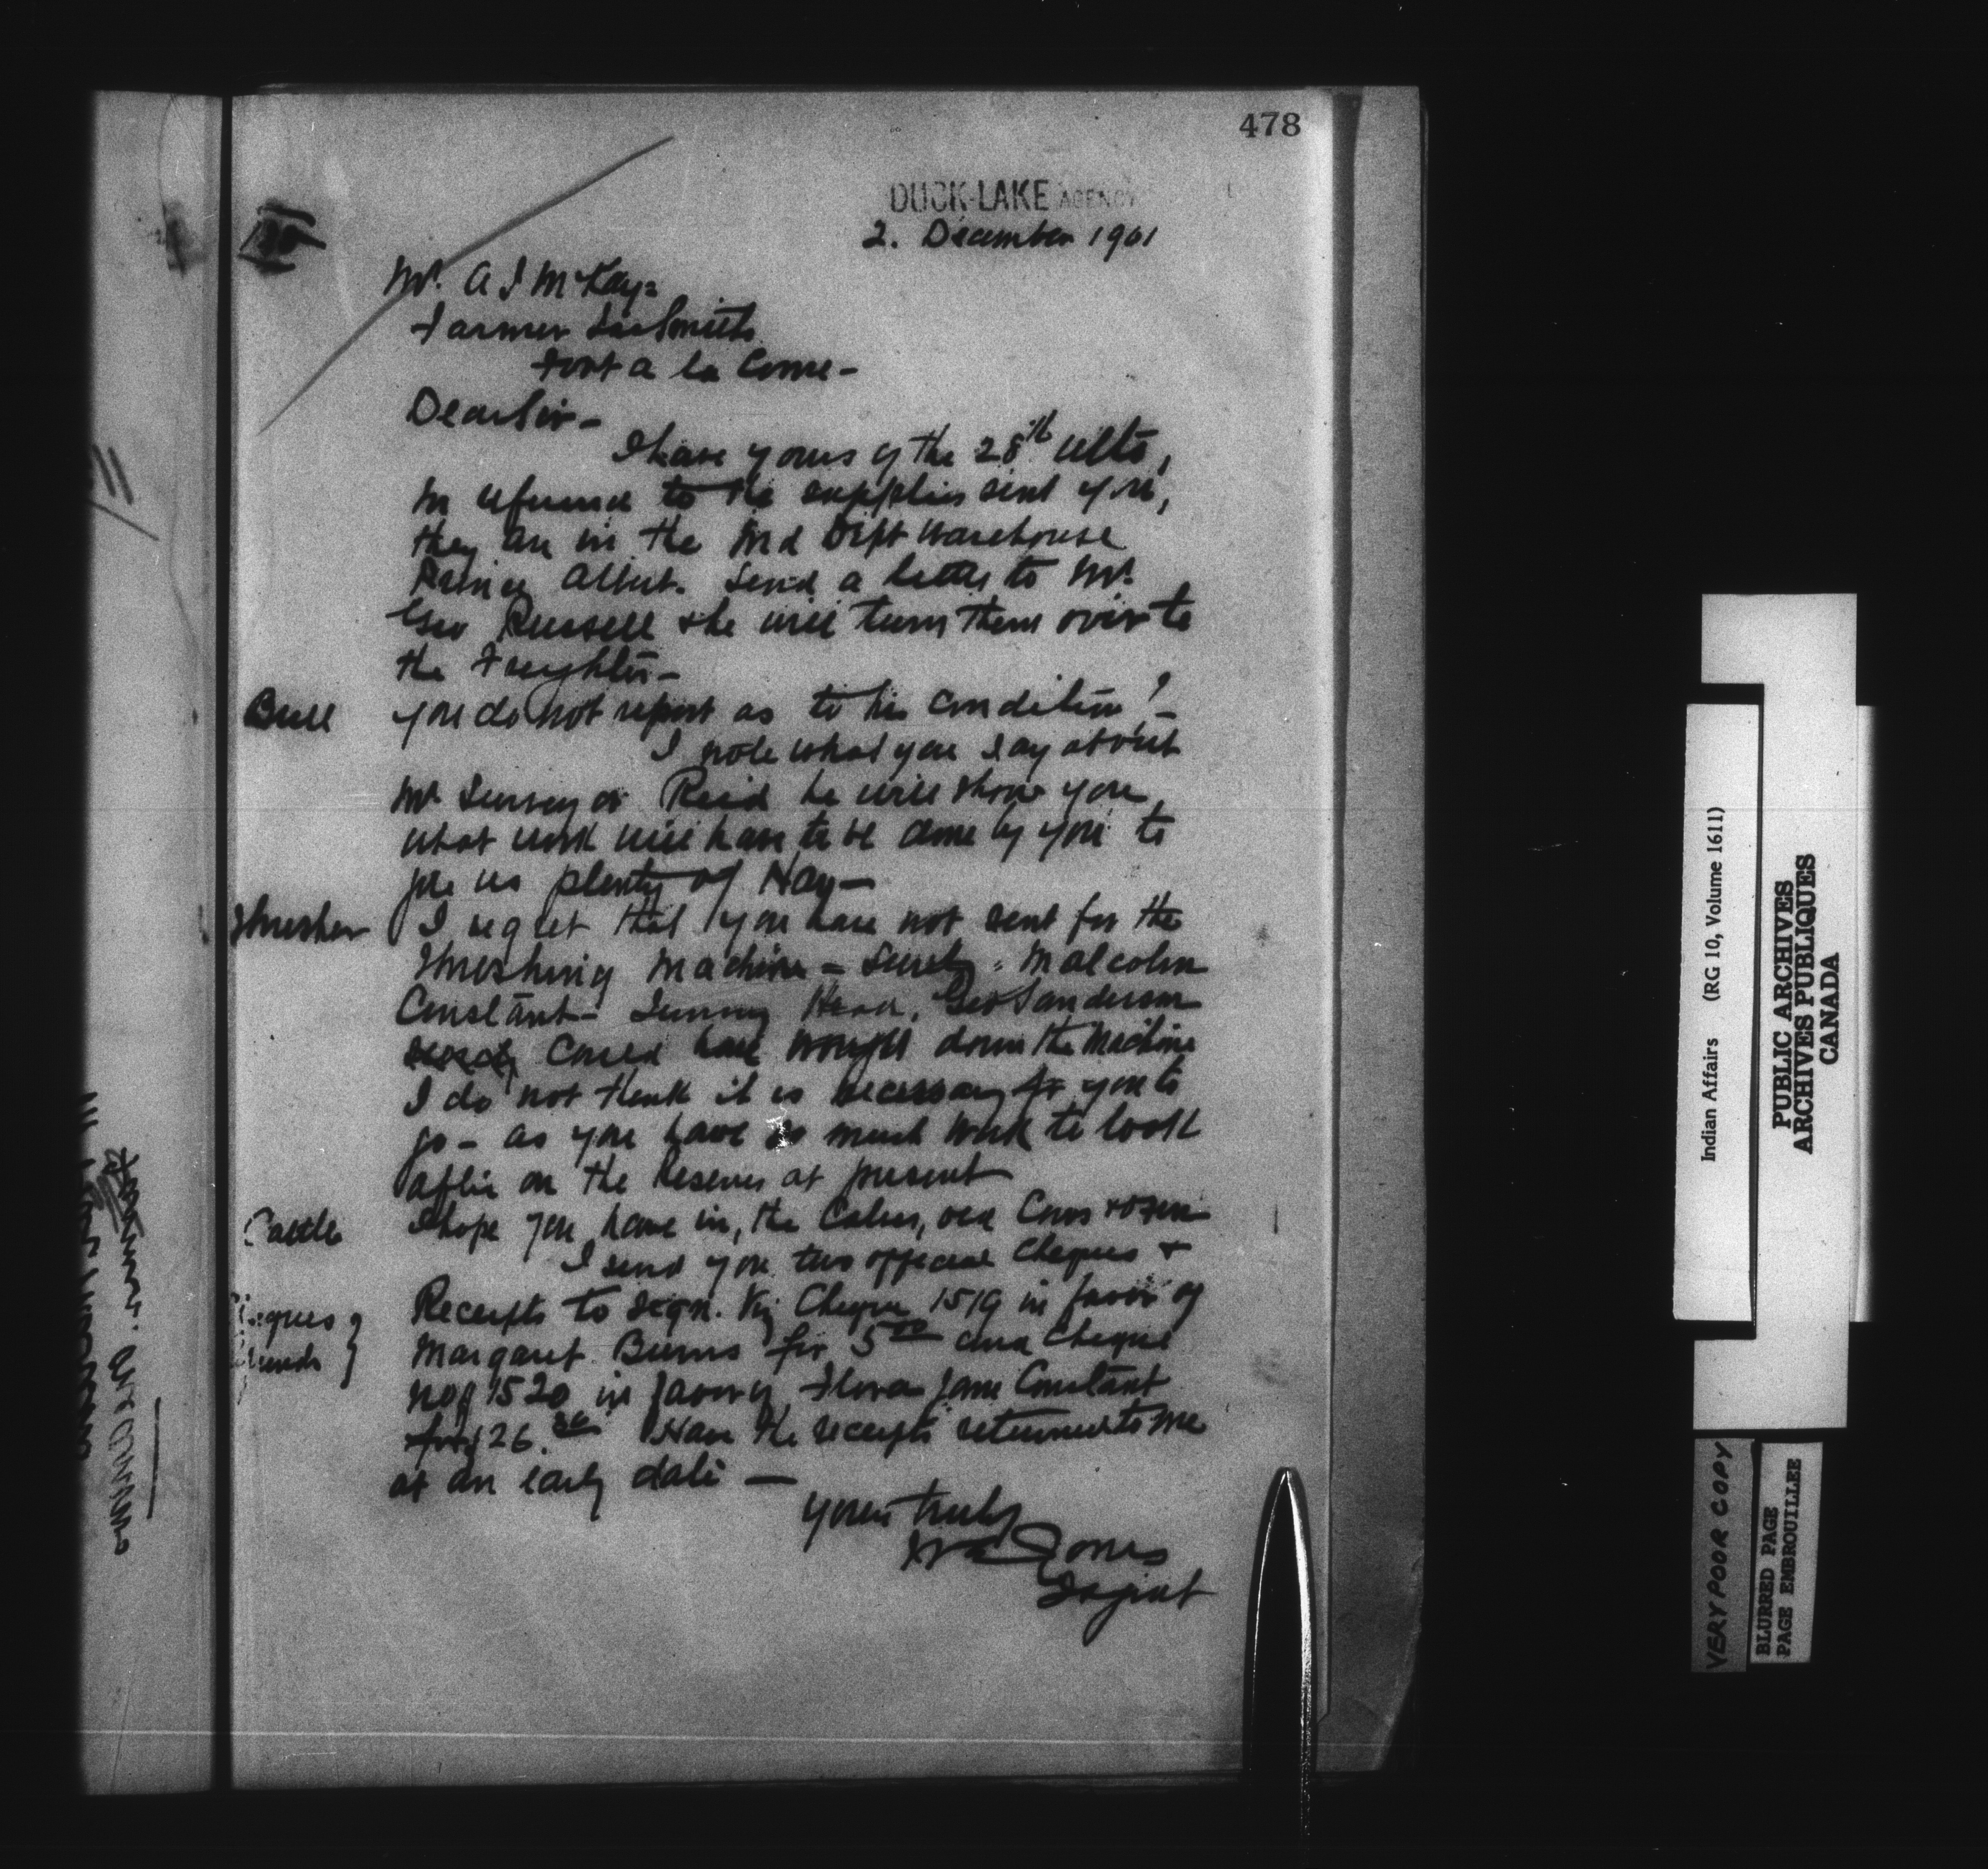 478
DUCK-LAKE AGENCY
2. December 1901
Mr. A J McKay=
Farmer
Fort a la Corne-
Dear Sir-
I have yours of the 28th ulto,
In reference to the supplies sent you,
they are in the Ind Dept Warehouse
Prince Albert. Send a letter to Mr.
Geo Russell & he will turn them over to
the Freighter-
Bull you do not report as to his condition!-
I note what you say about
Mr Surveyor Reid he will show you
what work will have to be done by you to
us plenty of Hay-
Thresher I regret that you have not sent for the
Threshing Machine - Surely, Malcolm
Constant- Head, Geo Sanderson
could have brought down the Machine
I do not think it is necessary for you to
go - as you have so much work to look
after on the Reserve at present
Cattle I hope you have in, the Calves, old Cows & oxen
I send you two official Cheques &
Receipts to sign. Viz Cheque 1519 in favor of
Margaret Burns for 5 and Cheque
no 1520 in favor of Flora Jane Constant
for 26. Have the receipts returned to me
at an early date -
yours truly
Jones
Ind Agent
Indian Affairs (RG 10, Volume 1611)
PUBLIC ARCHIVES
ARCHIVES PUBLIQUES
CANADA
VERY POOR COPY
BLURRED PAGE
PAGE EMBROUILLEE